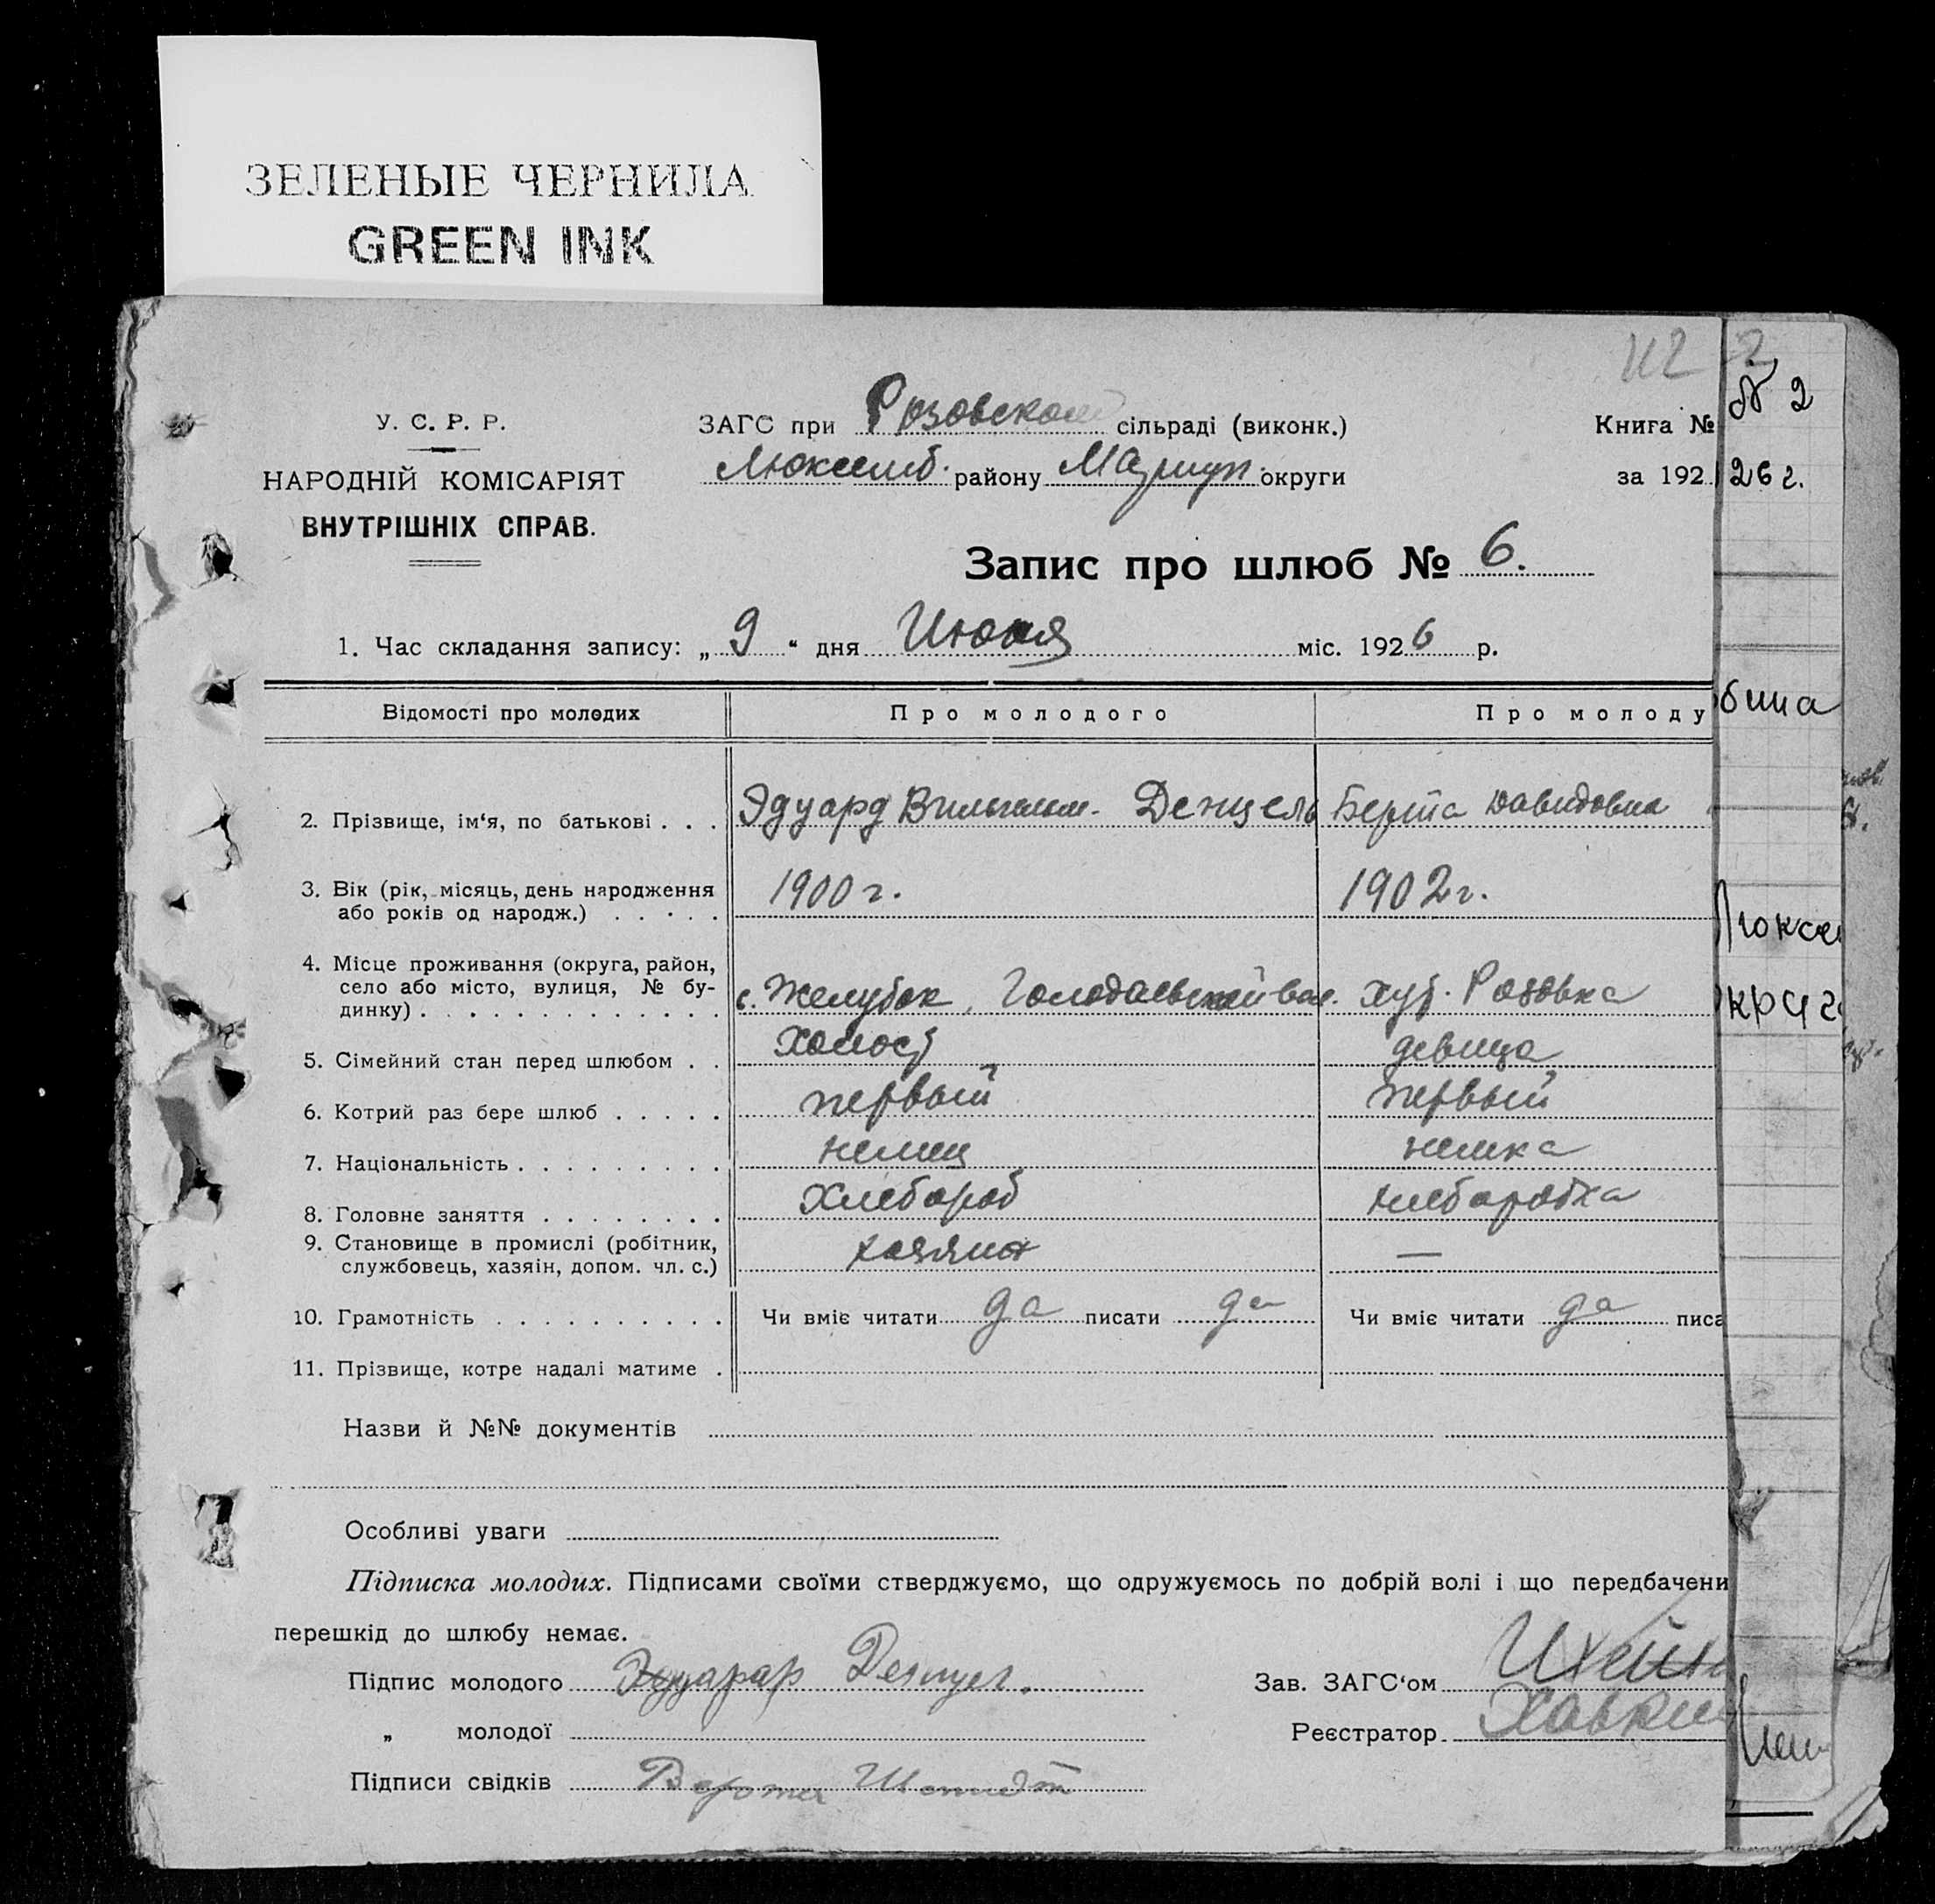 ЗЕЛЕНЫЕ ЧЕРНИЛА
GREEN INK
У. С. Р. Р.
НАРОДНІЙ КОМІСАРІЯТ
ВНУТРІШНІХ СПРАВ.
ЗАГС при Розовском сільраді (виконк.)
Люксемб. району Мариуп. округи
Книга № № 2
за 192 26 г.
Запис про шлюб № 6.
1. Час складання запису: „ 9 “ дня Июня міс. 1926 р.
Відомості про молодих Про молодого Про молоду
2. Прізвище, ім‘я, по батькові . . . Эдуард Вильгельм. Денцель Берта Давидовна
3. Вік (рік, місяць, день народження
або років од народж.) . . . . . 1900 г. 1902 г.
4. Місце проживання (округа, район,
село або місто, вулиця, № бу-
динку) . . . . . . . . . . . . . с. Желубок, Голодаевской вол. хут. Розовка
5. Сімейний стан перед шлюбом . . холост девица
6. Котрий раз бере шлюб . . . . . первый первый
7. Національність . . . . . . . . . немец немка
8. Головне заняття . . . . . . . . хлебороб хлеборобка
9. Становище в промислі (робітник,
службовець, хазяін, допом. чл. с.) хозяин —
10. Грамотність . . . . . . . . . . Чи вміє читати да писати да Чи вміє читати да писа
11. Прізвище, котре надалі матиме .
Назви й №№ документів
Особливі уваги
Підписка молодих. Підписами своїми стверджуємо, що одружуємось по добрій волі і що передбачени
перешкід до шлюбу немає.
Підпис молодого Эдуард Денцел.
Зав. ЗАГС‘ом
„ молодої
Реєстратор
Підписи свідків Шмидт